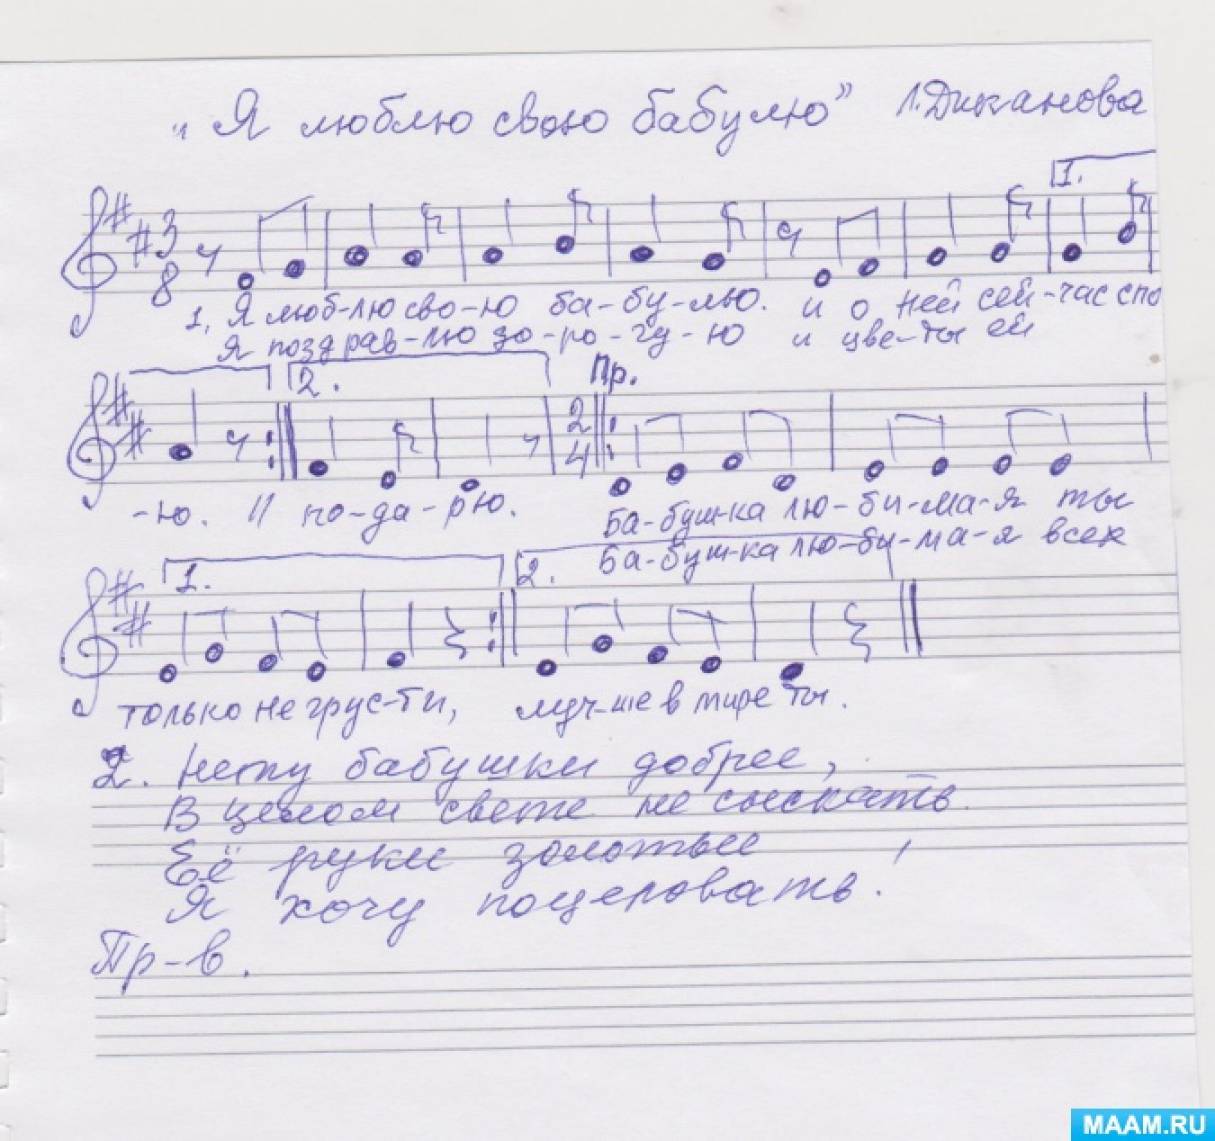 „Я люблю свою бабулю” Л. Дыганова
1.
3
8
1. Я люб-лю сво-ю ба-бу-лю. и о ней сей-час спо
Я поздрав-лю до-ро-гу-ю и цве-ты ей
2. Пр.
2
4
-ю. // по-да-рю. Ба-буш-ка лю-би-ма-я ты
Ба-буш-ка лю-би-ма-я всех
1. 2.
только не грус-ти, луч-ше в мире ты.
2. Нету бабушки добрее,
В целом свете не сыскать.
Её руки золотые
Я хочу поцеловать.
Пр-в.
MAAM.RU